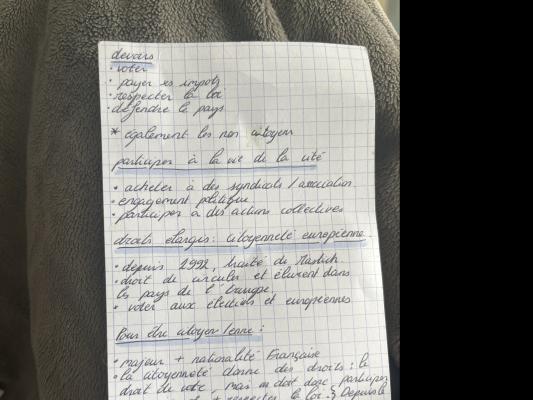 devoirs
• voter
• payer ses impots
• respecter la loi
• défendre le pays
* également les non citoyen
participer à la vie de la cité
• acheter à des syndicats / association
• engagement politique
• participer a des actions collectives
droits élargis : citoyenneté européenne
• depuis 1992, traité de
• droit de circuler et étudient dans
les pays de l'
• voter aux élections et européennes
Pour être citoyen/enne :
• majeur + nationalité Française
• la citoyenneté donne des droits : le
droit de vote, mais on doit donc participer
+ respecter la loi. Depuis le